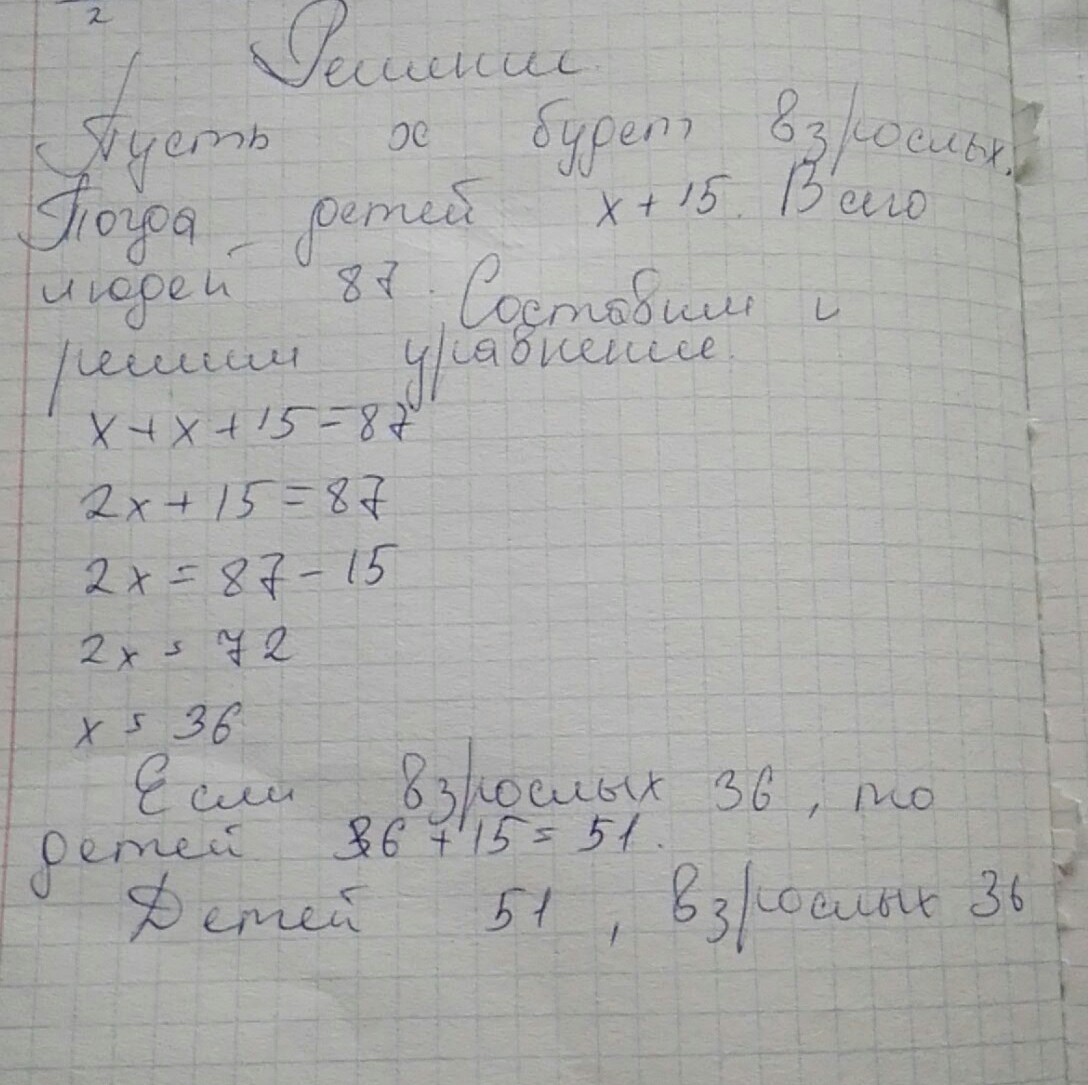 2
Решении
Пусть x будет взрослых.
Тогда детей x + 15. Всего
людей 87. Составим и
решим уравнение.
x + x + 15 = 87
2x + 15 = 87
2x = 87 - 15
2x = 72
x = 36
Если взрослых 36, то
детей 36 + 15 = 51.
Детей 51, взрослых 36